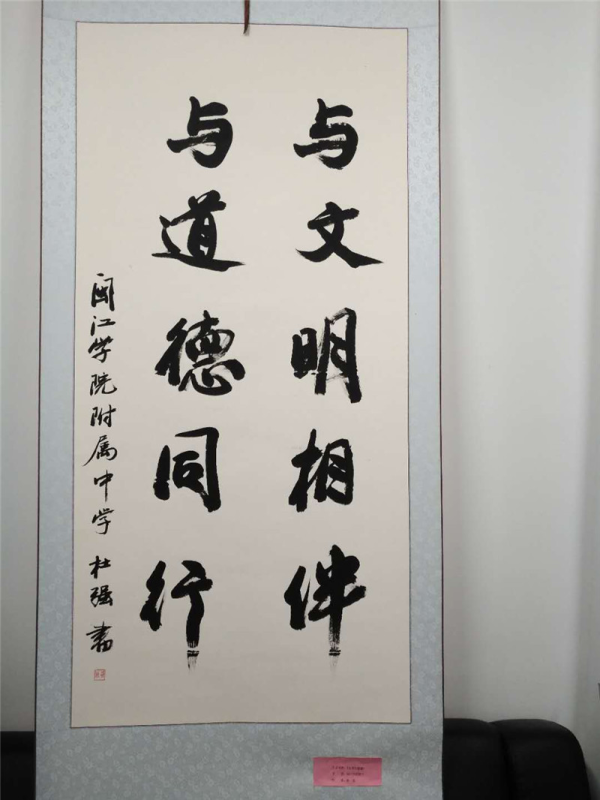 与文明相伴
与道德同行
闽江学院附属中学 杜强书